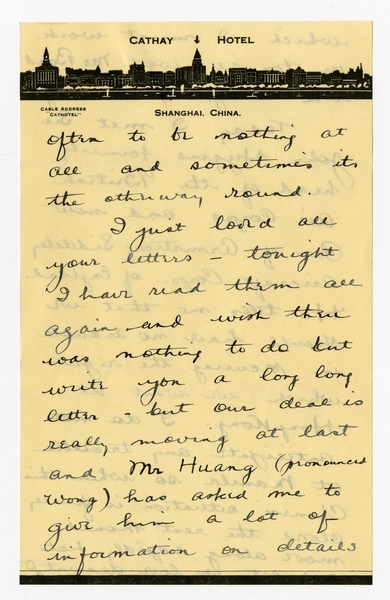 CATHAY HOTEL
CABLE ADDRESS
"CATHOTEL"
SHANGHAI. CHINA.
often to be nothing at
all and sometimes its
the otherway round.
I just loved all
your letters - tonight
I have read them all
again and wish there
was nothing to do but
write you a long long
letter - but our deal is
really moving at last
and Mr Huang (pronounced
Wong) has asked me to
give him a lot of
information on details